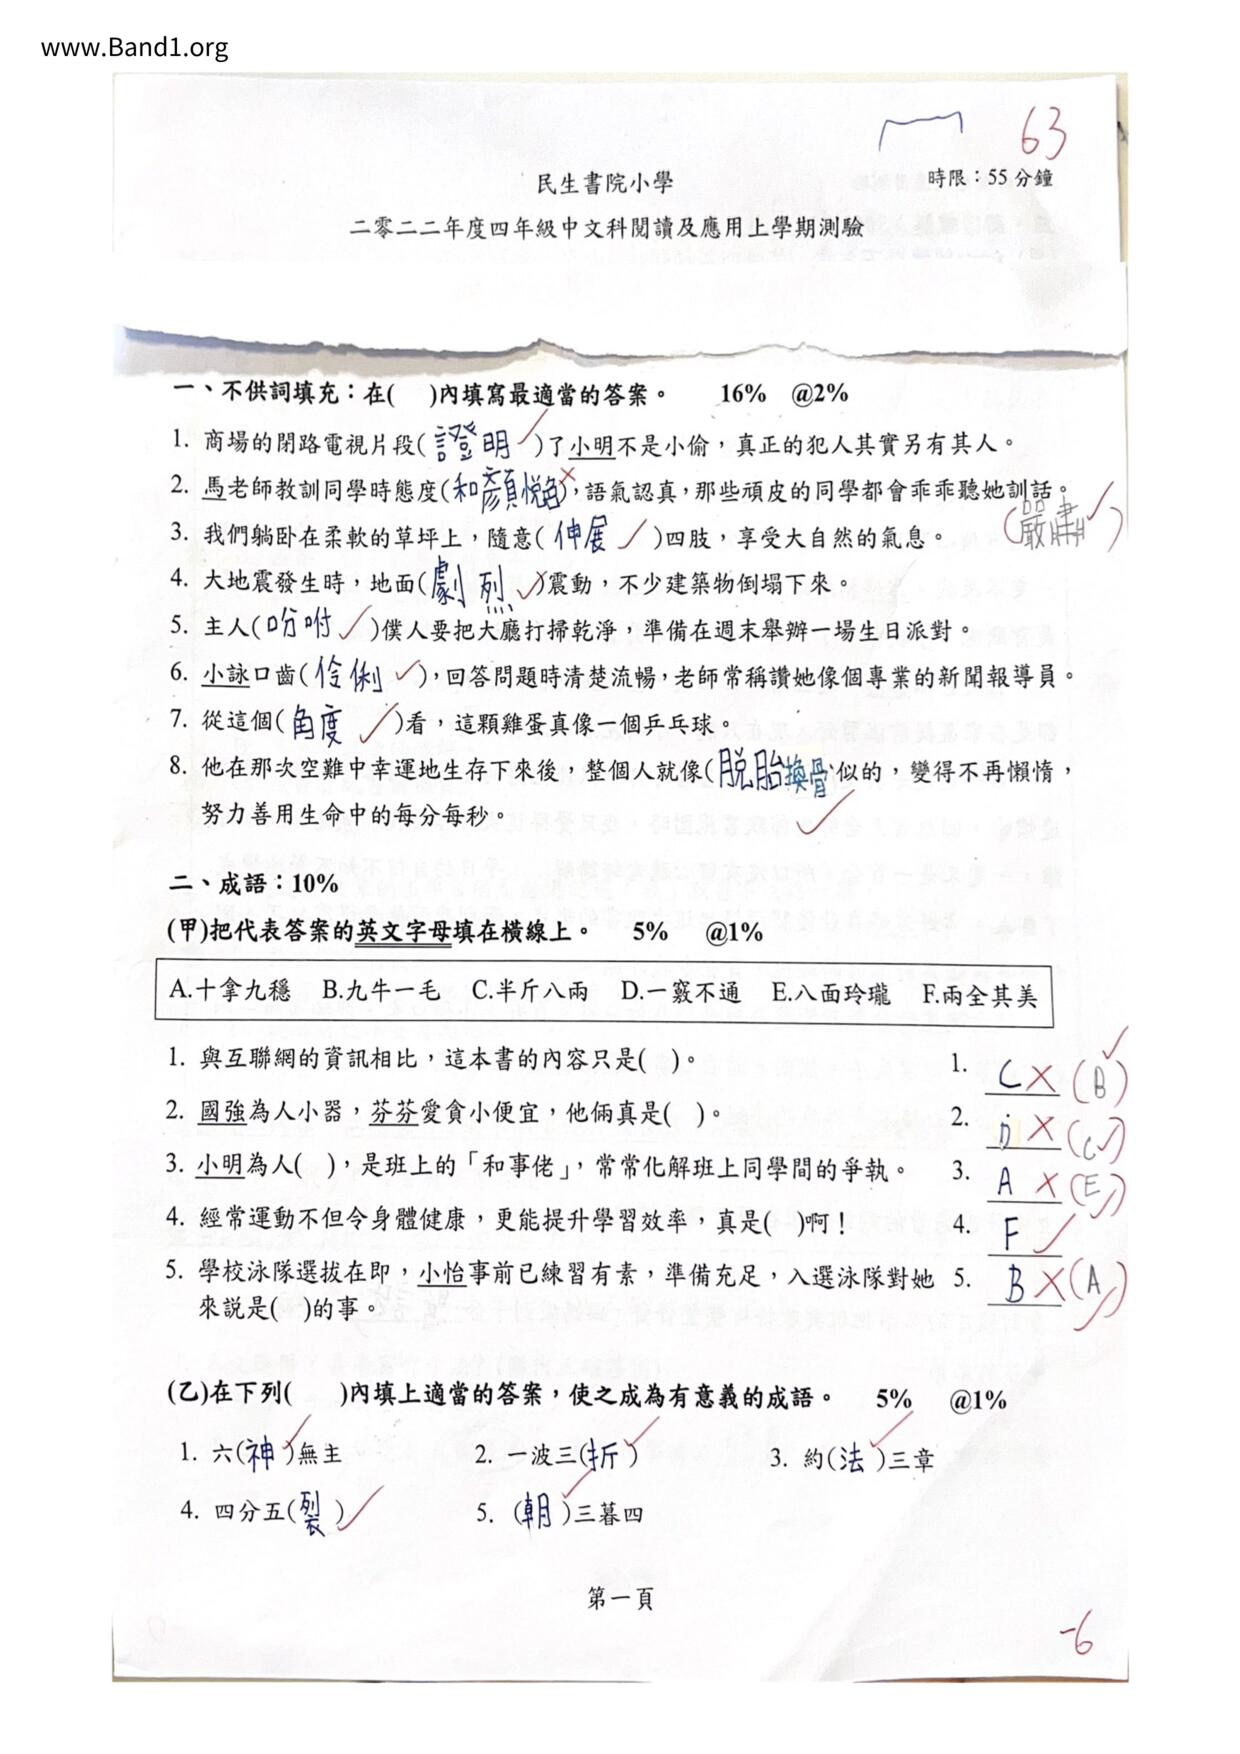 www.Band1.org
63
民生書院小學
時限：55分鐘
二零二二年度四年級中文科閱讀及應用上學期測驗
一、不供詞填充：在(　)內填寫最適當的答案。　16%　@2%
1. 商場的閉路電視片段(證明)了小明不是小偷，真正的犯人其實另有其人。
2. 馬老師教訓同學時態度(和顏悅色)，語氣認真，那些頑皮的同學都會乖乖聽她訓話。
(嚴肅)
3. 我們躺卧在柔軟的草坪上，隨意(伸展)四肢，享受大自然的氣息。
4. 大地震發生時，地面(劇烈)震動，不少建築物倒塌下來。
5. 主人(吩咐)僕人要把大廳打掃乾淨，準備在週末舉辦一場生日派對。
6. 小詠口齒(伶俐)，回答問題時清楚流暢，老師常稱讚她像個專業的新聞報導員。
7. 從這個(角度)看，這顆雞蛋真像一個乒乓球。
8. 他在那次空難中幸運地生存下來後，整個人就像(脫胎換骨)似的，變得不再懶惰，
努力善用生命中的每分每秒。
二、成語：10%
(甲)把代表答案的英文字母填在橫線上。　5%　@1%
A.十拿九穩　B.九牛一毛　C.半斤八兩　D.一竅不通　E.八面玲瓏　F.兩全其美
1. 與互聯網的資訊相比，這本書的內容只是(　)。　1. C (B)
2. 國強為人小器，芬芬愛貪小便宜，他倆真是(　)。　2. D (C)
3. 小明為人(　)，是班上的「和事佬」，常常化解班上同學間的爭執。　3. A (E)
4. 經常運動不但令身體健康，更能提升學習效率，真是(　)啊！　4. F
5. 學校泳隊選拔在即，小怡事前已練習有素，準備充足，入選泳隊對她　5. B (A)
來說是(　)的事。
(乙)在下列(　)內填上適當的答案，使之成為有意義的成語。　5%　@1%
1. 六(神)無主　2. 一波三(折)　3. 約(法)三章
4. 四分五(裂)　5. (朝)三暮四
第一頁
-6